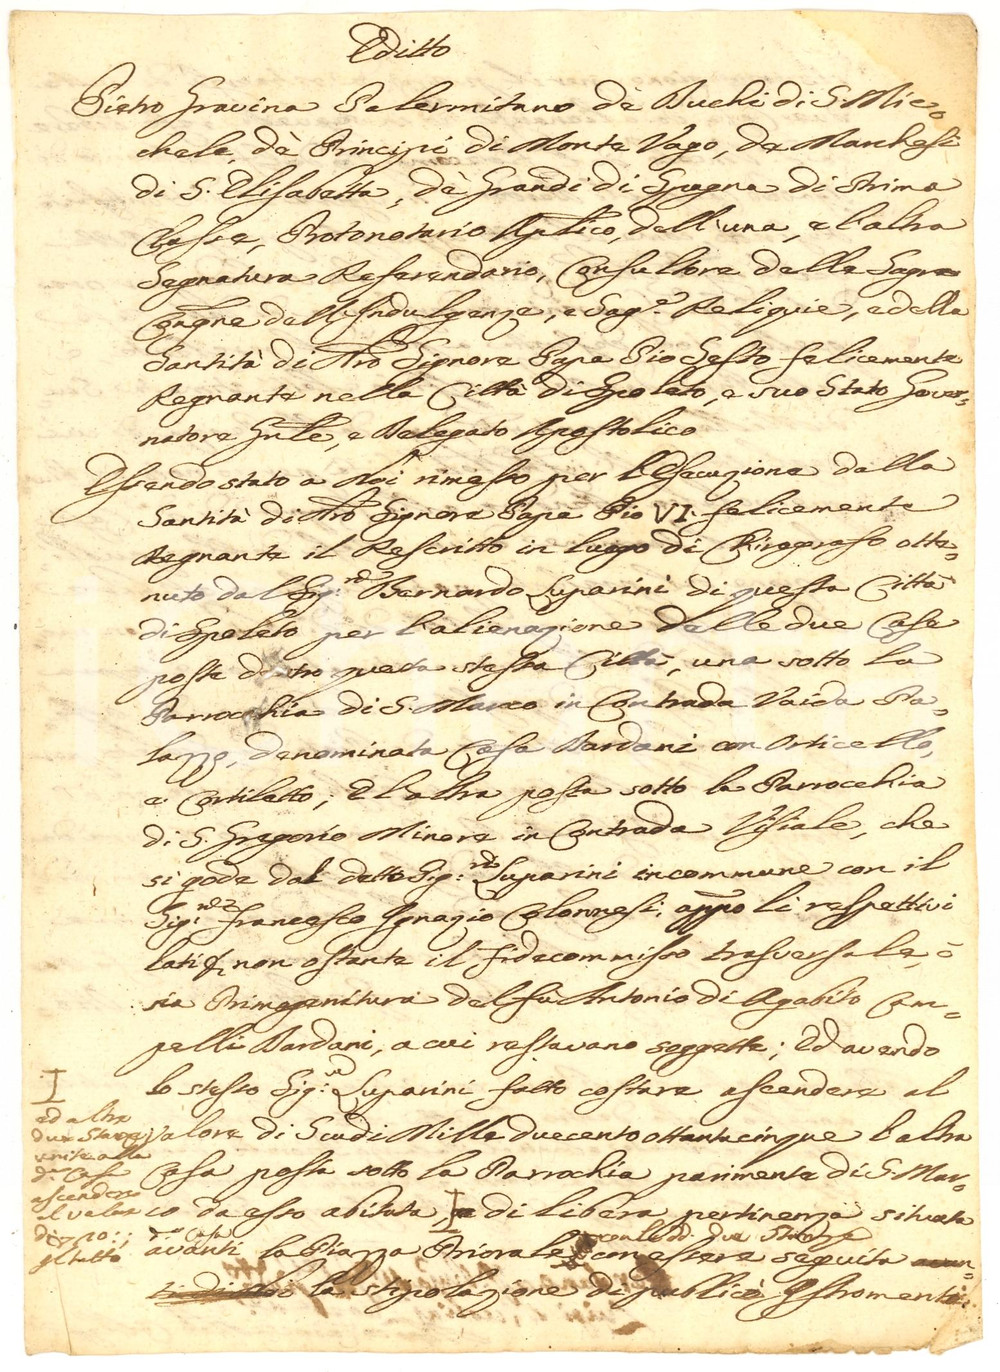 Editto
Pietro Gravina Palermitano de Duchi di S. Mic=
chele, dè Principi di Monte Vago, de Marchesi
di S. Elisabetta, dè Grandi di Spagna di Prima
Classe, Protonotario Aplico, dell'una, e l'altra
Segnatura Referendario, Consultore della Sagra
Congne dell'Indulgenze, e Sag.e Reliquie, e della
Santità di Nro Signore Papa Pio Sesto felicemente
Regnante nella Città di Spoleto, e suo Stato Gover=
natore Gnle, e Delegato Apostolico
Essendo stato a Noi rimesso per l'Esecuzione dalla
Santità di Nro Signore Papa Pio VI. felicemente
Regnante il Rescritto in luogo di Chirografo otte=
nuto dal Sig.r Bernardo Luparini di questa Città
di Spoleto per l'alienazione delle due Case
poste dentro questa stessa Città, una sotto la
Parrocchia di S. Marco in Contrada Vaida Pa=
lazzo, denominata Casa Bardani con Orticello,
e Cortiletto; E l'altra posta sotto la Parrocchia
di S. Gregorio Minore in Contrada Visiale, che
si gode dal detto Sig.r Luparini in commune con il
Sig.r Francesco Ignazio Colonnesi, appo li respettivi
lati &, non ostante il fidecommisso trasversale, ò
sia Primogenitura del fù Antonio di Agabito Cam=
pelli Bardani, a cui restavano soggette; Ed avendo
lo stesso Sig.r Luparini fatto costare ascendere al
valore di Scudi Mille duecento ottantacinque l'altra
Casa posta sotto la Parrochia parimente di S. Mar=
co da esso abitata di libera pertinenza situata
avanti la Piazza Priorale con le dd. due Stanze con essere seguita avan=
ti di Noi la stipolazione di publico Istromento
ed altre
due Stanze
unite alla
d.a Casa
ascendere
al valore